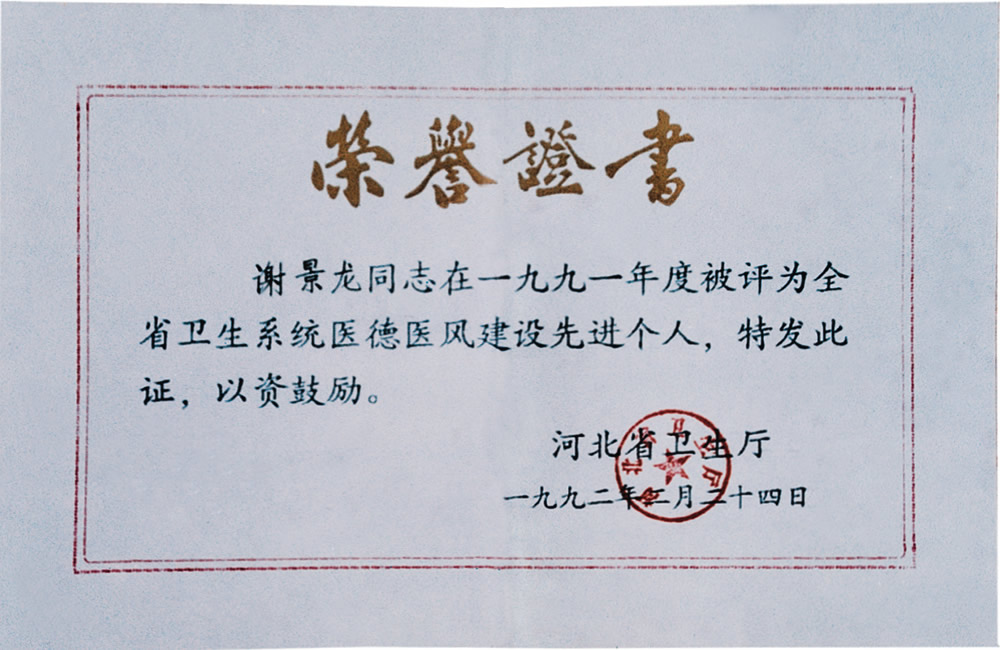 荣譽證書
谢景龙同志在一九九一年度被评为全
省卫生系统医德医风建设先进个人，特发此
证，以资鼓励。
河北省卫生厅
一九九二年二月二十四日
河北省卫生厅